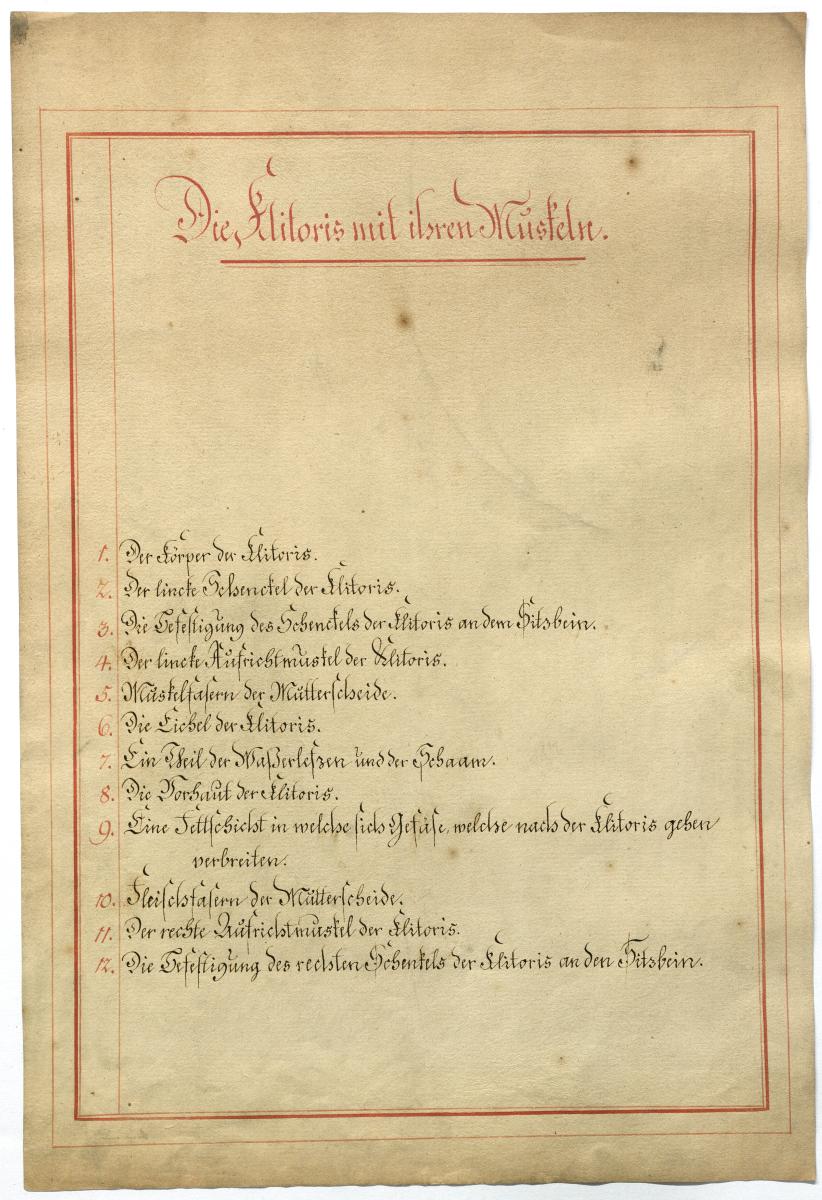 Die Klitoris mit ihren Muskeln.
1. Der Körper der Klitoris.
2. Der lincke Schenckel der Klitoris.
3. Die Befestigung des Schenckels der Klitoris an dem Sitzbein.
4. Der lincke Aufrichtmuskel der Klitoris.
5. Muskelfasern der Mutterscheide.
6. Die Eichel der Klitoris.
7. Ein Theil der Waßerlefzen und der Schaam.
8. Die Vorhaut der Klitoris.
9. Eine Fettschicht in welche sich Gefäse, welche nach der Klitoris gehen
verbreiten.
10. Fleischfasern der Mutterscheide.
11. Der rechte Aufrichtmuskel der Klitoris.
12. Die Befestigung des rechten Schenkels der Klitoris an den Sitzbein.